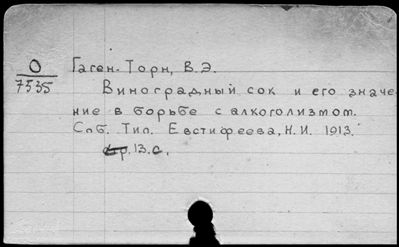 О Гаген-Торн, В.Э.
7535 Виноградный сок и его значе-
ние в борьбе с алкоголизмом.
Спб. Тип. Евстифеева, Н.И. 1913.
13.с.